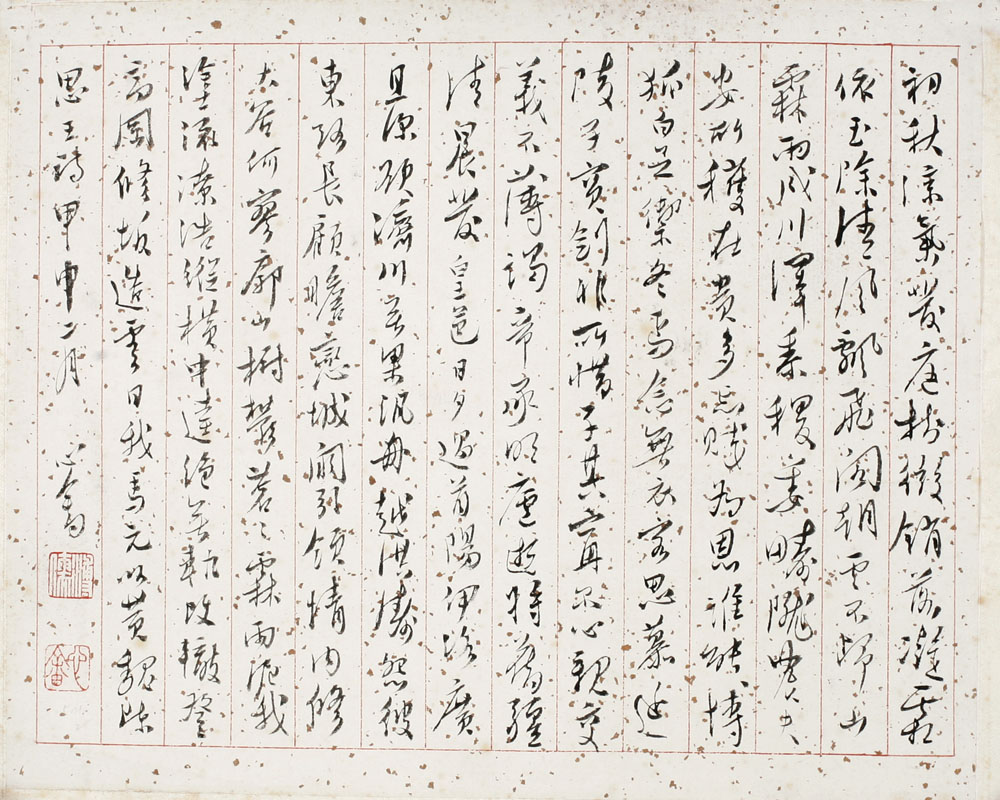 初秋涼氣發庭樹微銷落凝霜
依玉除清風飄飛閣朝雲不歸山
霖雨成川澤黍稷委疇隴農夫
安所獲在貴多忘賤為恩誰能博
狐白足禦冬焉念無衣客思慕延
陵子寶劍非所惜子其寧爾心親交
義不薄謁帝承明廬逝將舊疆
清晨發皇邑日夕過首陽伊洛廣
且深欲濟川無梁汎舟越洪濤怨彼
東路長顧瞻戀城闕引領情內傷
大谷何寥廓山樹鬱蒼蒼霖雨泥我
塗流潦浩縱橫中逵絕無軌改轍登
高岡修坂造雲日我馬元以黃魏陳
思王詩甲申二月 心畬
溥儒
心畬